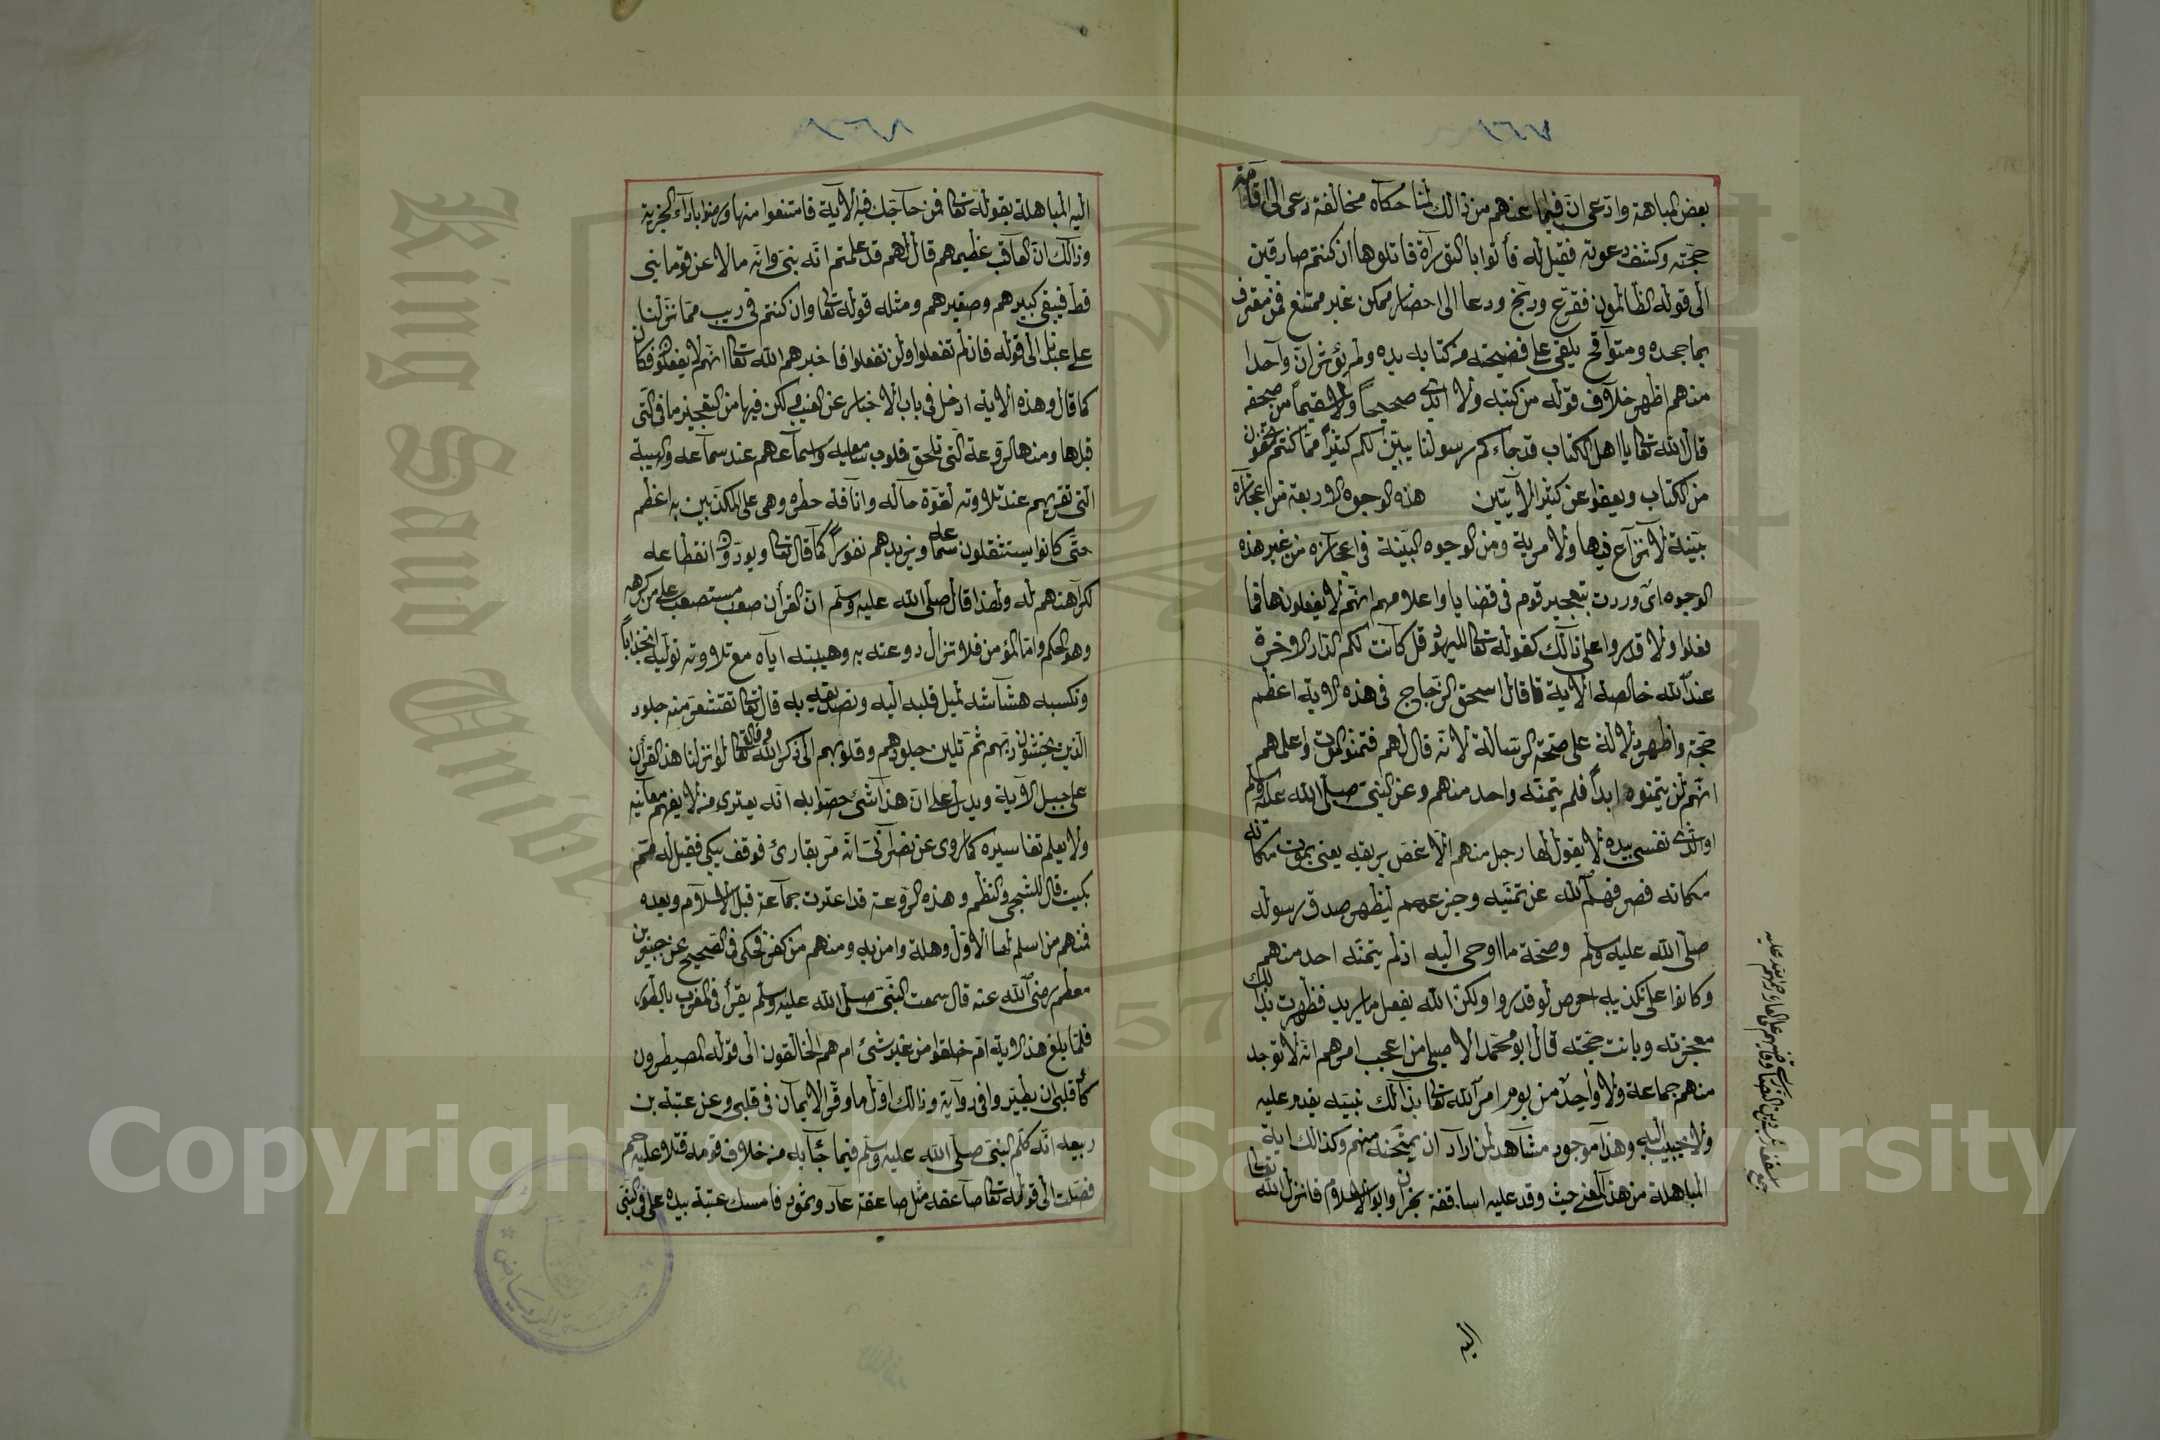 ١٣٧
بعض المباهتة وادعى ان فيما عندهم من ذالك لمنا حكاه مخالفة دعى الى اقامة
حجته وكشف دعوته فقيل له فأتوا بالتورآة فاتلوها ان كنتم صادقين
الى قوله الظالمون فقرع ووبخ ودعا الى احضار ممكن غير ممتنع فمن معترف
بما جحده ومتواقح يلقى على فضيحته من كتابه يده ولم يؤثر ان واحدا
منهم اظهر خلاف قوله من كتبه ولا ابدى صحيحاً ولا سقيماً من صحفه
قال الله تعالى يا اهل الكتاب قد جاءكم رسولنا يبين لكم كثيراً مما كنتم تخفون
من الكتاب ويعفوا عن كثير الآيتين هذه الوجوه الاربعة من اعجازه
بينة لا نزاع فيها ولا مرية ومن الوجوه البينة في اعجازه من غير هذه
الوجوه اى وردت بتعجيز قوم في قضايا واعلامهم انهم لا يفعلونها فما
فعلوا ولا قدروا على ذالك كقوله تعالى لليهود قل كانت لكم الدار الاخرة
عند الله خالصة الاية قال اسحق الزجاج في هذه الاية اعظم
حجة واظهر دلالة على صحة الرسالة لانه قال لهم فتمنوا الموت واعلمهم
انهم لن يتمنوه ابداً فلم يتمنه واحد منهم وعن النبى صلى الله عليه وسلم
والذى نفسى بيده لا يقولها رجل منهم الا غص بريقه يعنى يموت مكانه
مكانه فصرفهم الله عن تمنيه وجزعهم ليظهر صدق رسوله
صلى الله عليه وسلم وصحة ما اوحى اليه اذ لم يتمنه احد منهم
وكانوا على تكذيبه احرص لو قدروا ولكن الله يفعل ما يريد فظهرت بذالك
معجزته وبانت حجته قال ابو محمد الاصيلى من اعجب امرهم انه لا توجد
منهم جماعة ولا واحد من يوم امر الله تعالى بذالك نبيه يقدم عليه
ولا يجيب اليه وهذا موجود مشاهد لمن اراد ان يمتحنه منهم وكذالك اية
المباهلة من هذا المعنى حيث وفد عليه اساقفة نجران وابوا الاسلام فانزل الله تعالى
اليه
١٣٨
اليه المباهلة بقوله تعالى فمن حاجك فيه الاية فامتنعوا منها ورضوا باداء الجزية
وذالك ان العاقب عظيمهم قال لهم قد علمتم انه نبى وانه ما لاعن قوما نبى
قط فيبقى كبيرهم وصغيرهم ومثله قوله تعالى وان كنتم في ريب مما نزلنا
على عبدنا الى قوله فان لم تفعلوا ولن تفعلوا فاخبرهم الله تعالى انهم لا يفعلون فكان
كما قال وهذه الاية ادخل في باب الاخبار عن الغيب لكن فيها من التعجيز ما في التى
قبلها ومنها الروعة التى تلحق قلوب سامعيه واسماعهم عند سماعه والهيبة
التى تعتريهم عند تلاوته لقوة حاله وانافة خطره وهى على المكذبين به اعظم
حتى كانوا يستثقلون سماعه ويزيدهم نفوراً كما قال تعالى ويودون انقطاعه
لكراهتهم له ولهذا قال صلى الله عليه وسلم ان القرأن صعب مستصعب على من كرهه
وهو الحكم واما المؤمن فلا تزال روعته به وهيبته اياه مع تلاوته توليه انجذاباً
وتكسبه هشاشة لميل قلبه اليه وتصديقه به قال تعالى تقشعر منه جلود
الذين يخشون ربهم ثم تلين جلودهم وقلوبهم الى ذكر الله وقال تعالى لو انزلنا هذا القرأن
على جبل الاية ويدل على ان هذا شئ خص به انه يعترى من لا يفهم معانيه
ولا يعلم تفاسيره كما روى عن نصرانى انه مر بقارئ فوقف يبكى فقيل له مم
بكيت قال للشجى والنظم وهذه الروعة قد اعترت جماعة قبل الاسلام وبعده
فمنهم من اسلم لها لاول وهلة وامن به ومنهم من كفر فحكى في الصحيح عن جبير بن
مطعم رضى الله عنه قال سمعت النبى صلى الله عليه وسلم يقرأ في المغرب بالطور
فلما بلغ هذه الاية ام خلقوا من غير شئ ام هم الخالقون الى قوله المصيطرون
كاد قلبى ان يطير وفى رواية وذالك اول ما وقر الايمان في قلبى وعن عتبة بن
ربيعة انه كلم النبى صلى الله عليه وسلم فيما جاء به من خلاف قومه فتلا عليهم حم
فصلت الى قوله تعالى صاعقة مثل صاعقة عاد وثمود فامسك عتبة بيده على فى النبى
King Saud University
1957
Copyright © King Saud University